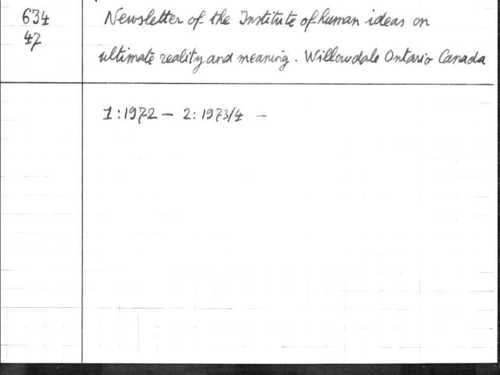 634
47
Newsletter of the Institute of human ideas on
ultimate reality and meaning. Willowdale Ontario Canada
1:1972 — 2: 1973/4 —